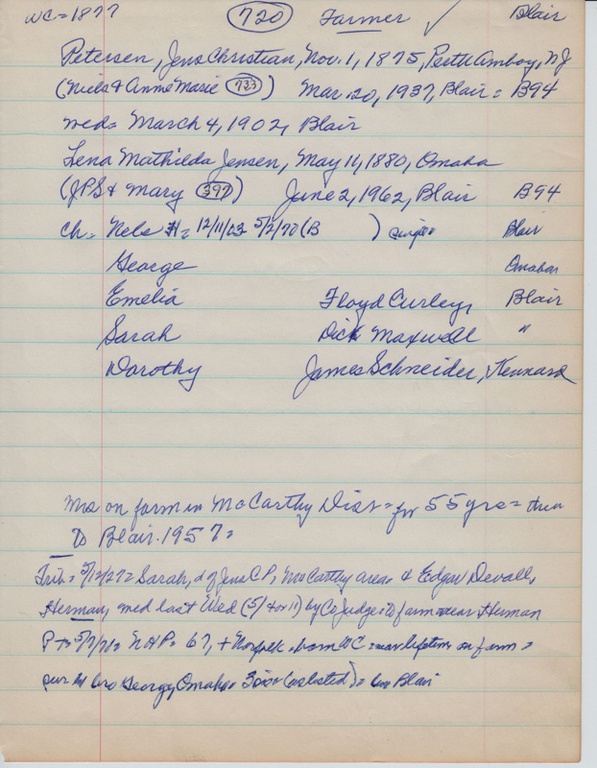 WC = 1877 720 Farmer ✓ Blair
Petersen, Jens Christian, Nov. 1, 1875, Perth Amboy, NJ
(Niels & Anne Marie 733) Mar. 20, 1937, Blair = B94
wed = March 4, 1902, Blair
Lena Mathilda Jensen, May 11, 1880, Omaha
(JPS & Mary 397) June 2, 1962, Blair B94
Ch = Nels H = 12/11/03 5/2/70 (B ) single Blair
George Omaha
Emelia Floyd Curley, Blair
Sarah Dick Maxwell "
Dorothy James Schneider, Kennard
Mrs on farm in McCarthy Dist = for 55 yrs = then
To Blair. 1957 =
Trib = 5/12/27 = Sarah, d of Jens C P, McCarthy area = & Edgar Devall,
Herman, wed last Wed (5/4 or 11) by Co Judge = To farm near Herman
P T = 5/7/70 = N H P = 67, + Norfolk = born WC = on farm =
sur by bro George, Omaha = 3 sis (as listed) = Blair